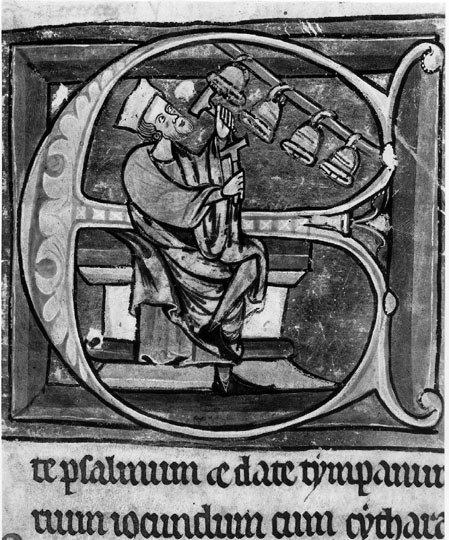 E
te psalmum & date tympanum
rium iocundum cum cythara